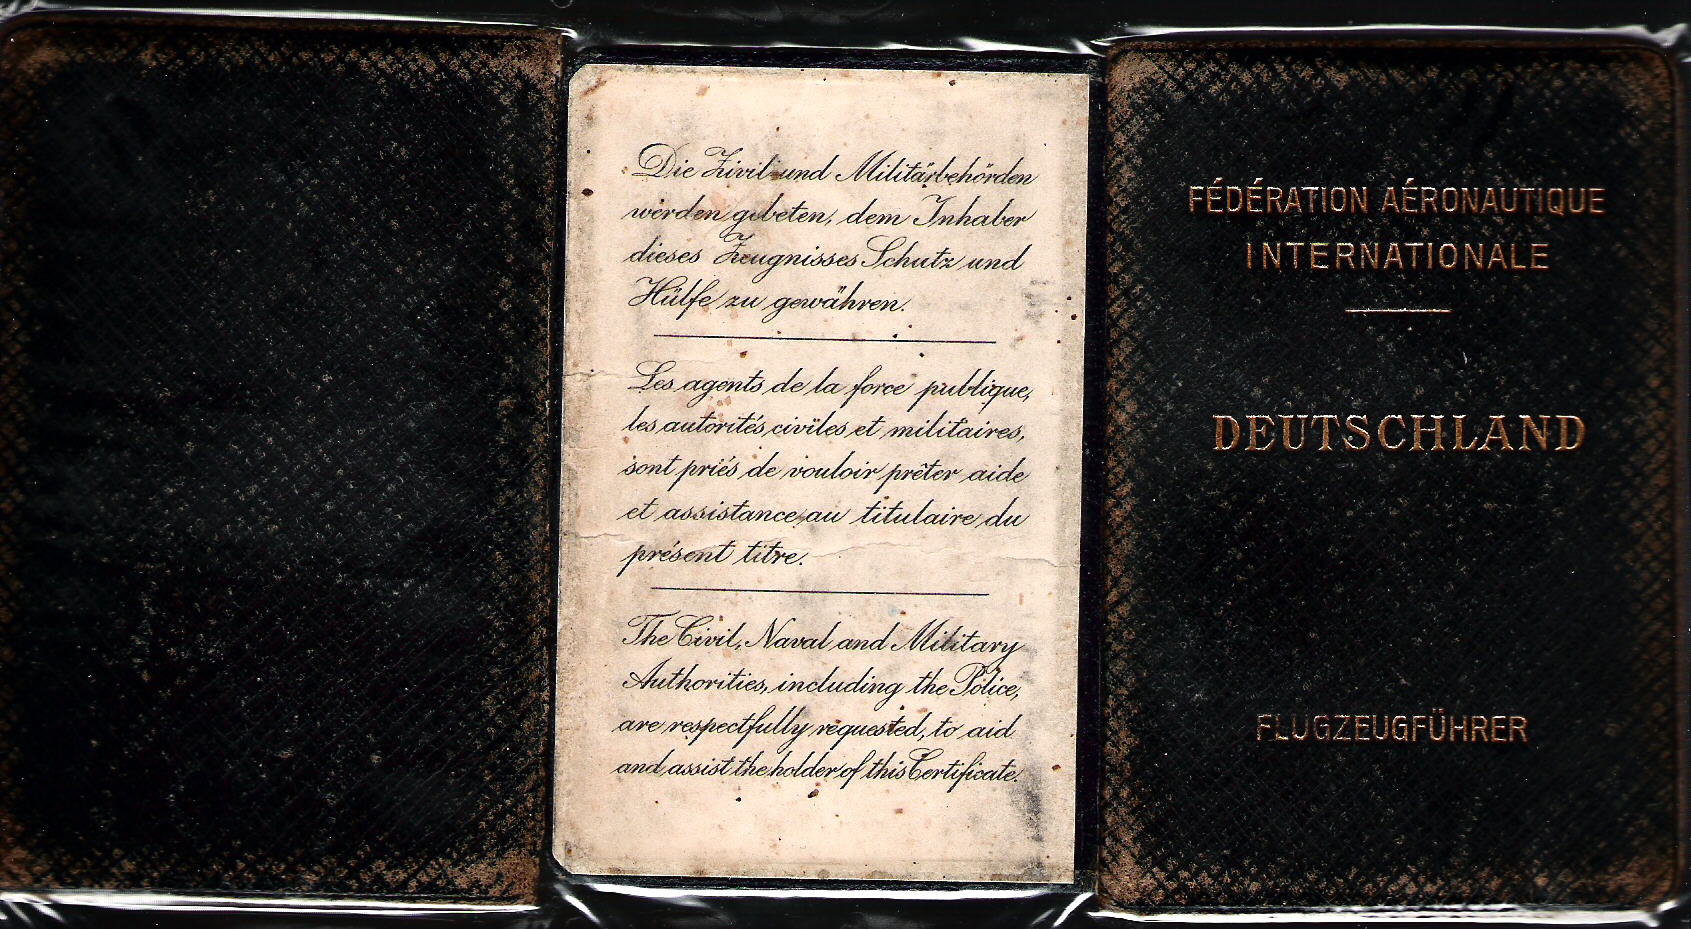 Die Zivil- und Militärbehörden
werden gebeten, dem Inhaber
dieses Zeugnisses Schutz und
Hülfe zu gewähren.
Les agents de la force publique,
les autorités civiles et militaires,
sont priés de vouloir prêter aide
et assistance au titulaire du
présent titre.
The Civil, Naval and Military
Authorities, including the Police,
are respectfully requested, to aid
and assist the holder of this Certificate.
FÉDÉRATION AÉRONAUTIQUE
INTERNATIONALE
DEUTSCHLAND
FLUGZEUGFÜHRER